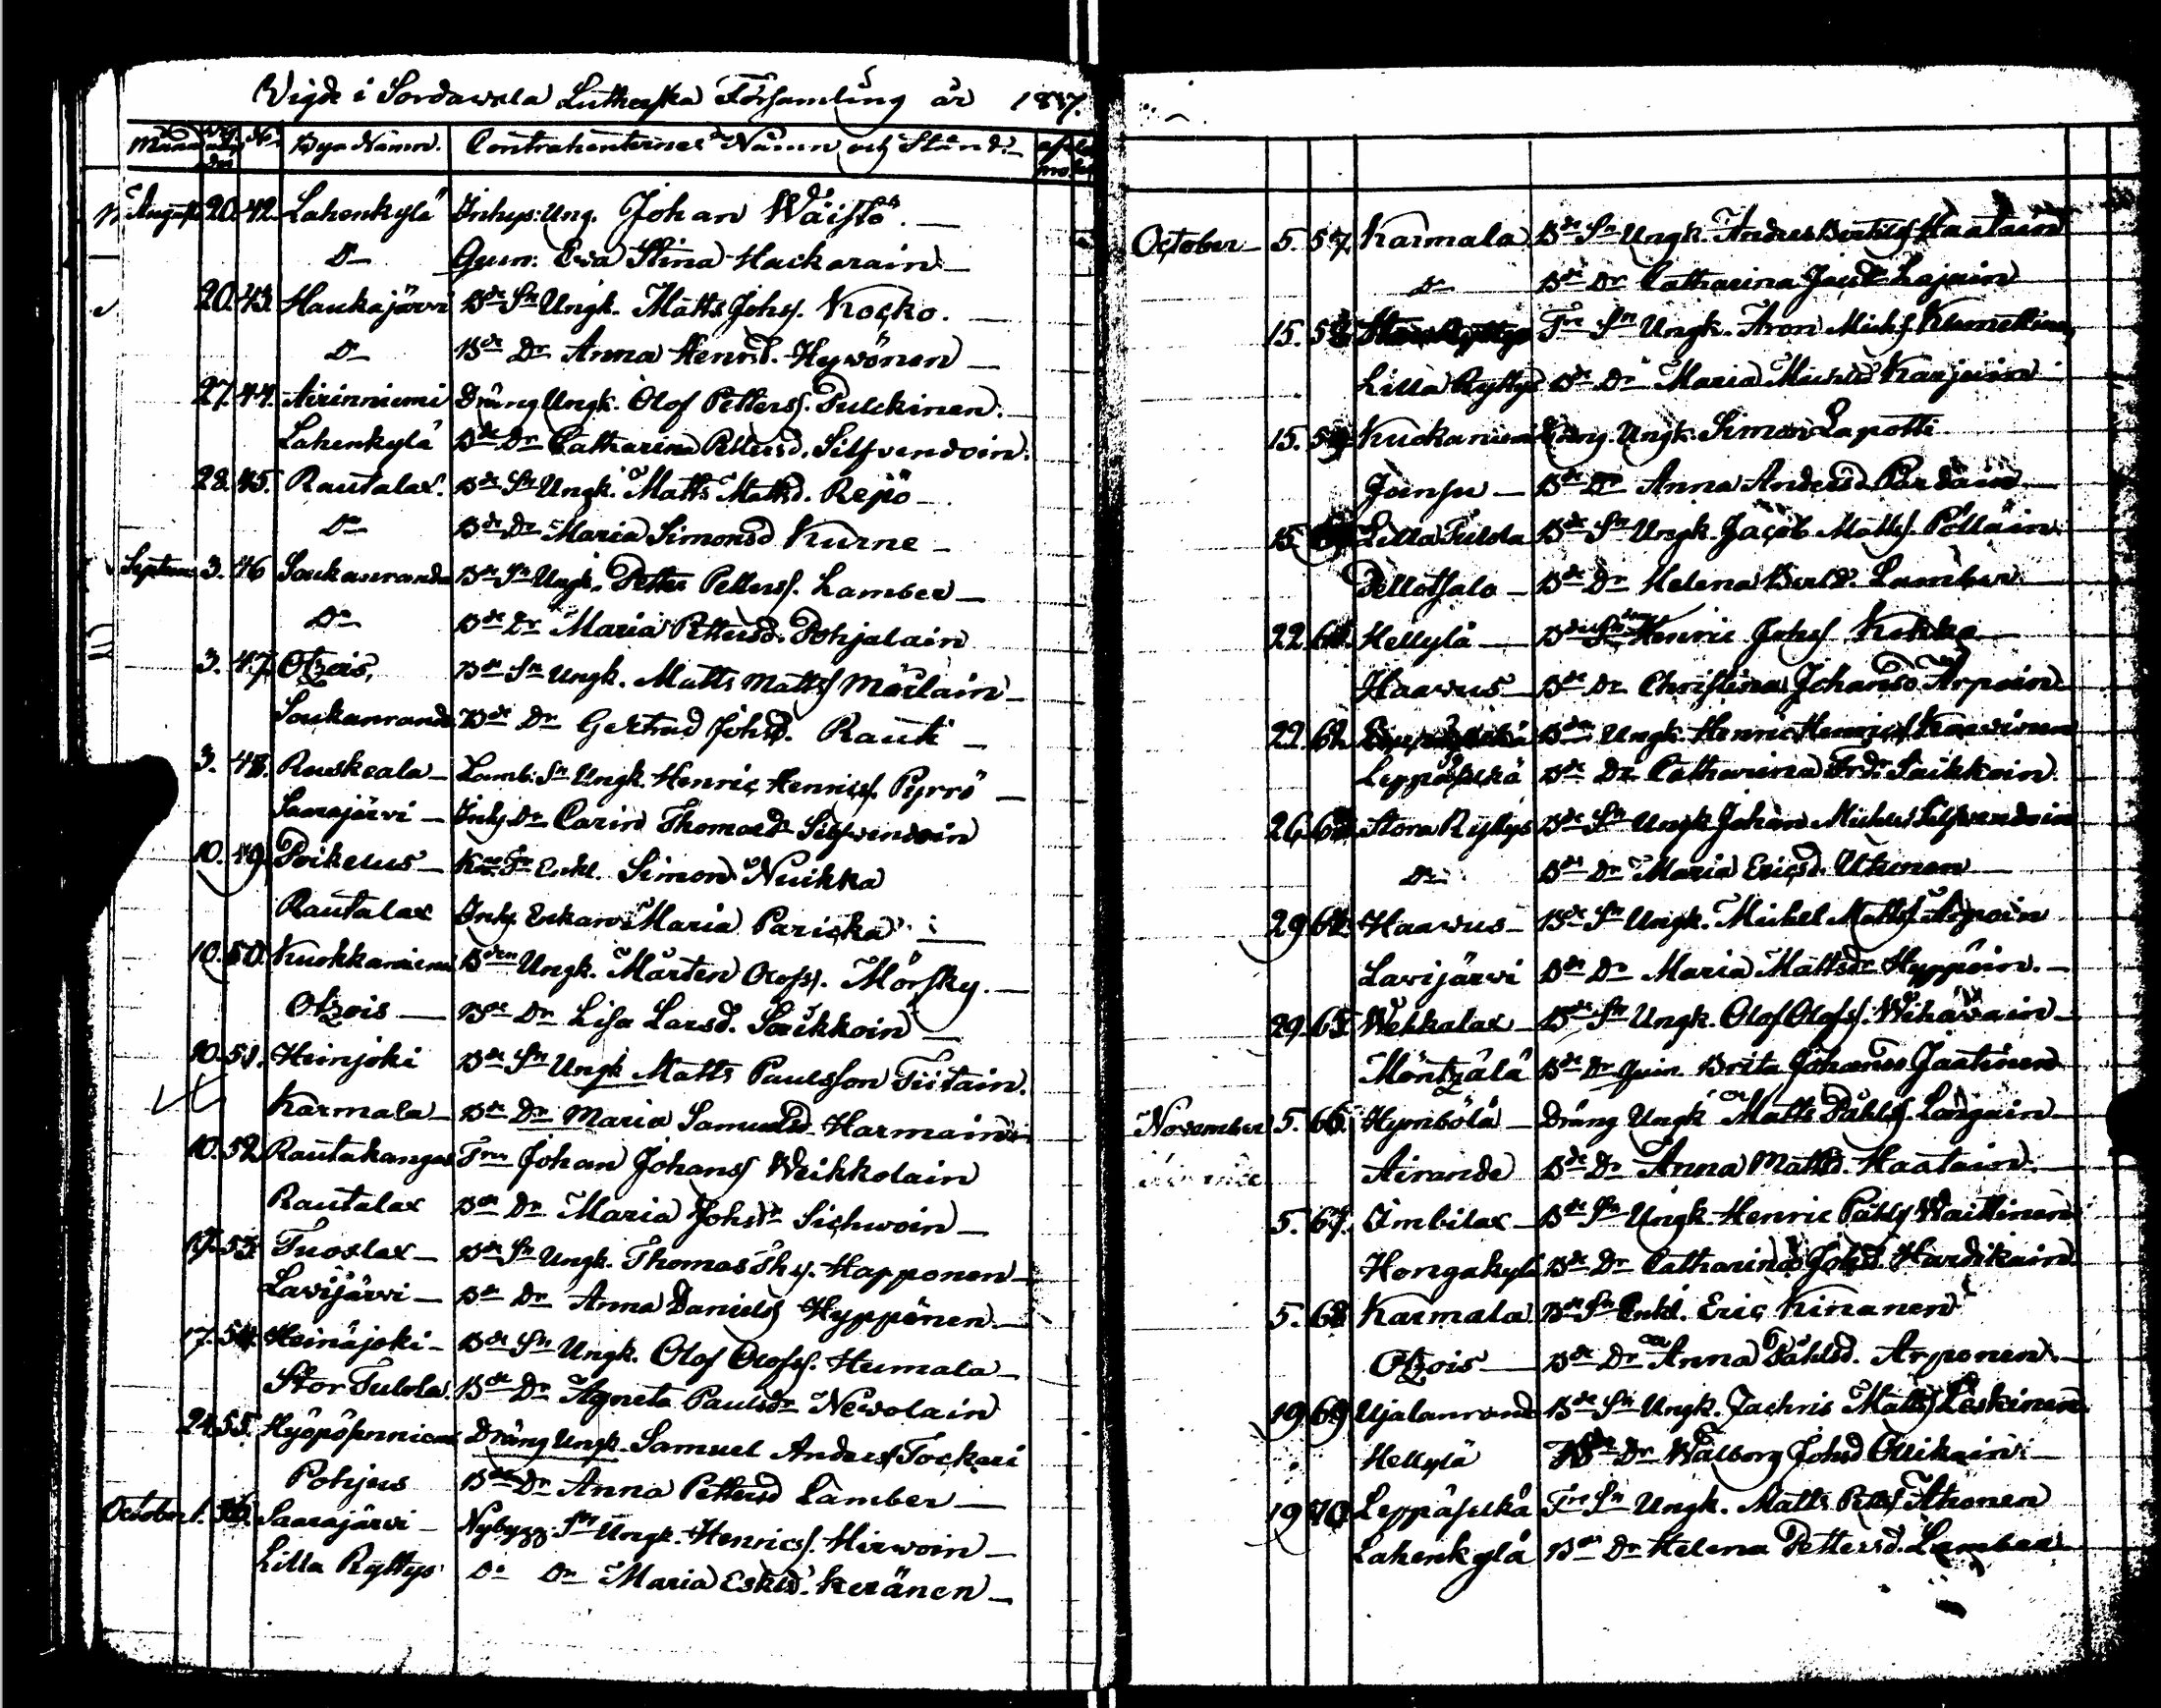 Vigde i Sordawala Lutherska Församling år 1837.
Månad Wig dag No Bya Namn. Contrahenternes Namn och Stånd.
August 20. 42. Lahenkylä Inhys: Ung. Johan Wäistö. —
Do Gum. Eva Stina Hackarain —
20. 43. Haukajärvi Bde Sn Ungk. Matts Johs. Kocko. —
Do Bde Dr Anna Henrsd. Hywönen —
27. 44. Airinniemi Dräng Ungk. Olof Petterss. Pulckinen. —
Lahenkylä Bde Dr Catharina Pettersd. Silfvendoin.
28. 45. Rautalax. Bde Sn Ungk. Matts Mattsd. Repo —
Do Bde Dr Maria Simonsd Kurne —
Septem 3. 46 Soukanranda Bde Sn Ungk. Petter Petterss. Lamber —
Do Bde Dr Maria Pettersd. Pohjalain
3. 47. Otzois, Bde Sn Ungk. Matts Matts Mörlain —
Soukanranda Bde Dr Gertrud Johsd. Rauti —
3. 48. Ruskeala — Lamb: Sn Ungk Henric Henricss. Pyrrö —
Saarajärvi — Inhy Dr Carin Thomasdr Silfvendoin
10. 49. Poikelus — Enkl. Simon Nuikka
Rautalax Inhy. Enkan Maria Paricka —
10. 50. Kuokkaniemi Bden Ungk. Mårten Olofss. Mörsky. —
Otzois — Bde Dr Lisa Larsd. Saikkoin —
10. 51. Heinjoki Bde Sn Ungk Matts Paulsson Tiitain.
Karmala — Bde Dr Maria Samuelsd Harmain
10. 52 Rautakangas Johan Johanss Weikkolain
Rautalax Bde Dr Maria Johsdr Sichwoin —
17. 53. Tuoslax — Bde Sn Ungk. Thomas Ths. Happonen —
Lavijärvi — Bde Dr Anna Daniels Hyppönen. —
17. 54. Heinäjoki — Bde Sn Ungk. Olof Olofss. Humala —
Stor Tulola. Bde Dr Agneta Paulsdr Newolain
24. 55. Hyöpöenniemi Dräng Ungk. Samuel Anderss Tockari
Pohjus Bde Dr Anna Pettersd Lamber —
October 1. 56. Saarajärvi — Nybygg. Sn Ungk. Henricss. Hirvoin —
Lilla Ryttys Do Dr Maria Eskilsd. Keränen —
October — 5. 57. Karmala Bde Sn Ungk. Anders Bertils Haatain
Do Bde Dr Catharina Lajain
15. 58. Sn Ungk. Aron Michs. Kumettinen
Lilla Ryttys Bde Dr Maria Michelsd Karjain
15. 59. Kuckaniemi Dräng Ungk. Simon Lapotti
Joensu — Bde Dr Anna Andersd Pardain —
15. Lilla Tulola Bde Sn Ungk. Jacob Matts. Pölläin
Pellotsalo — Bde Dr Helena Bertsd. Lamber.
22. 61. Hellylä — Henric Johs Kukka —
Haavus — Bde Dr Christina Johansd Arpoin
22. 62. Bden Ungk. Henric Henrics Kaarinen
Leppäsilkä Bde Dr Catharina Saikkoin.
26. 63. Stora Ryttys Bde Sn Ungk Johan Michels Silfvendoin
Do Bde Dr Maria Ericsd. Utunen —
29. 64. Haavus — Bde Sn Ungk. Michel Matts Arpoin
Lavijärvi Bde Dr Maria Mattsdr Hyppöin. —
29. 65. Wehkalax — Bde Sn Ungk. Olof Olofs. Wihavain —
Möntzälä Bde Dr Brita Johansd Jaatinen
November 5. 66. Hymbölä — Dräng Ungk Matts Påhls. Langain —
Airande Bde Dr Anna Mattsd. Haatain. —
5. 67. Imbilax — Bde Sn Ungk. Henric Påhls Waittinen
Hongakylä Bde Dr Catharina Johsd. Hardikain
5. 68 Karmala Bde Sn Enkl. Eric Kinanen
Otzois — Bde Dr Anna Påhlsd. Arponen. —
19. 69. Ujalanranda Bde Sn Ungk. Zachris Matts Leskinen
Hellylä Dr Walborg Johsd Ollikain. —
19 70. Leppäsilkä Sn Ungk. Matts Petts Ahonen
Lahenkylä Bde Dr Helena Pettersd. Lamber